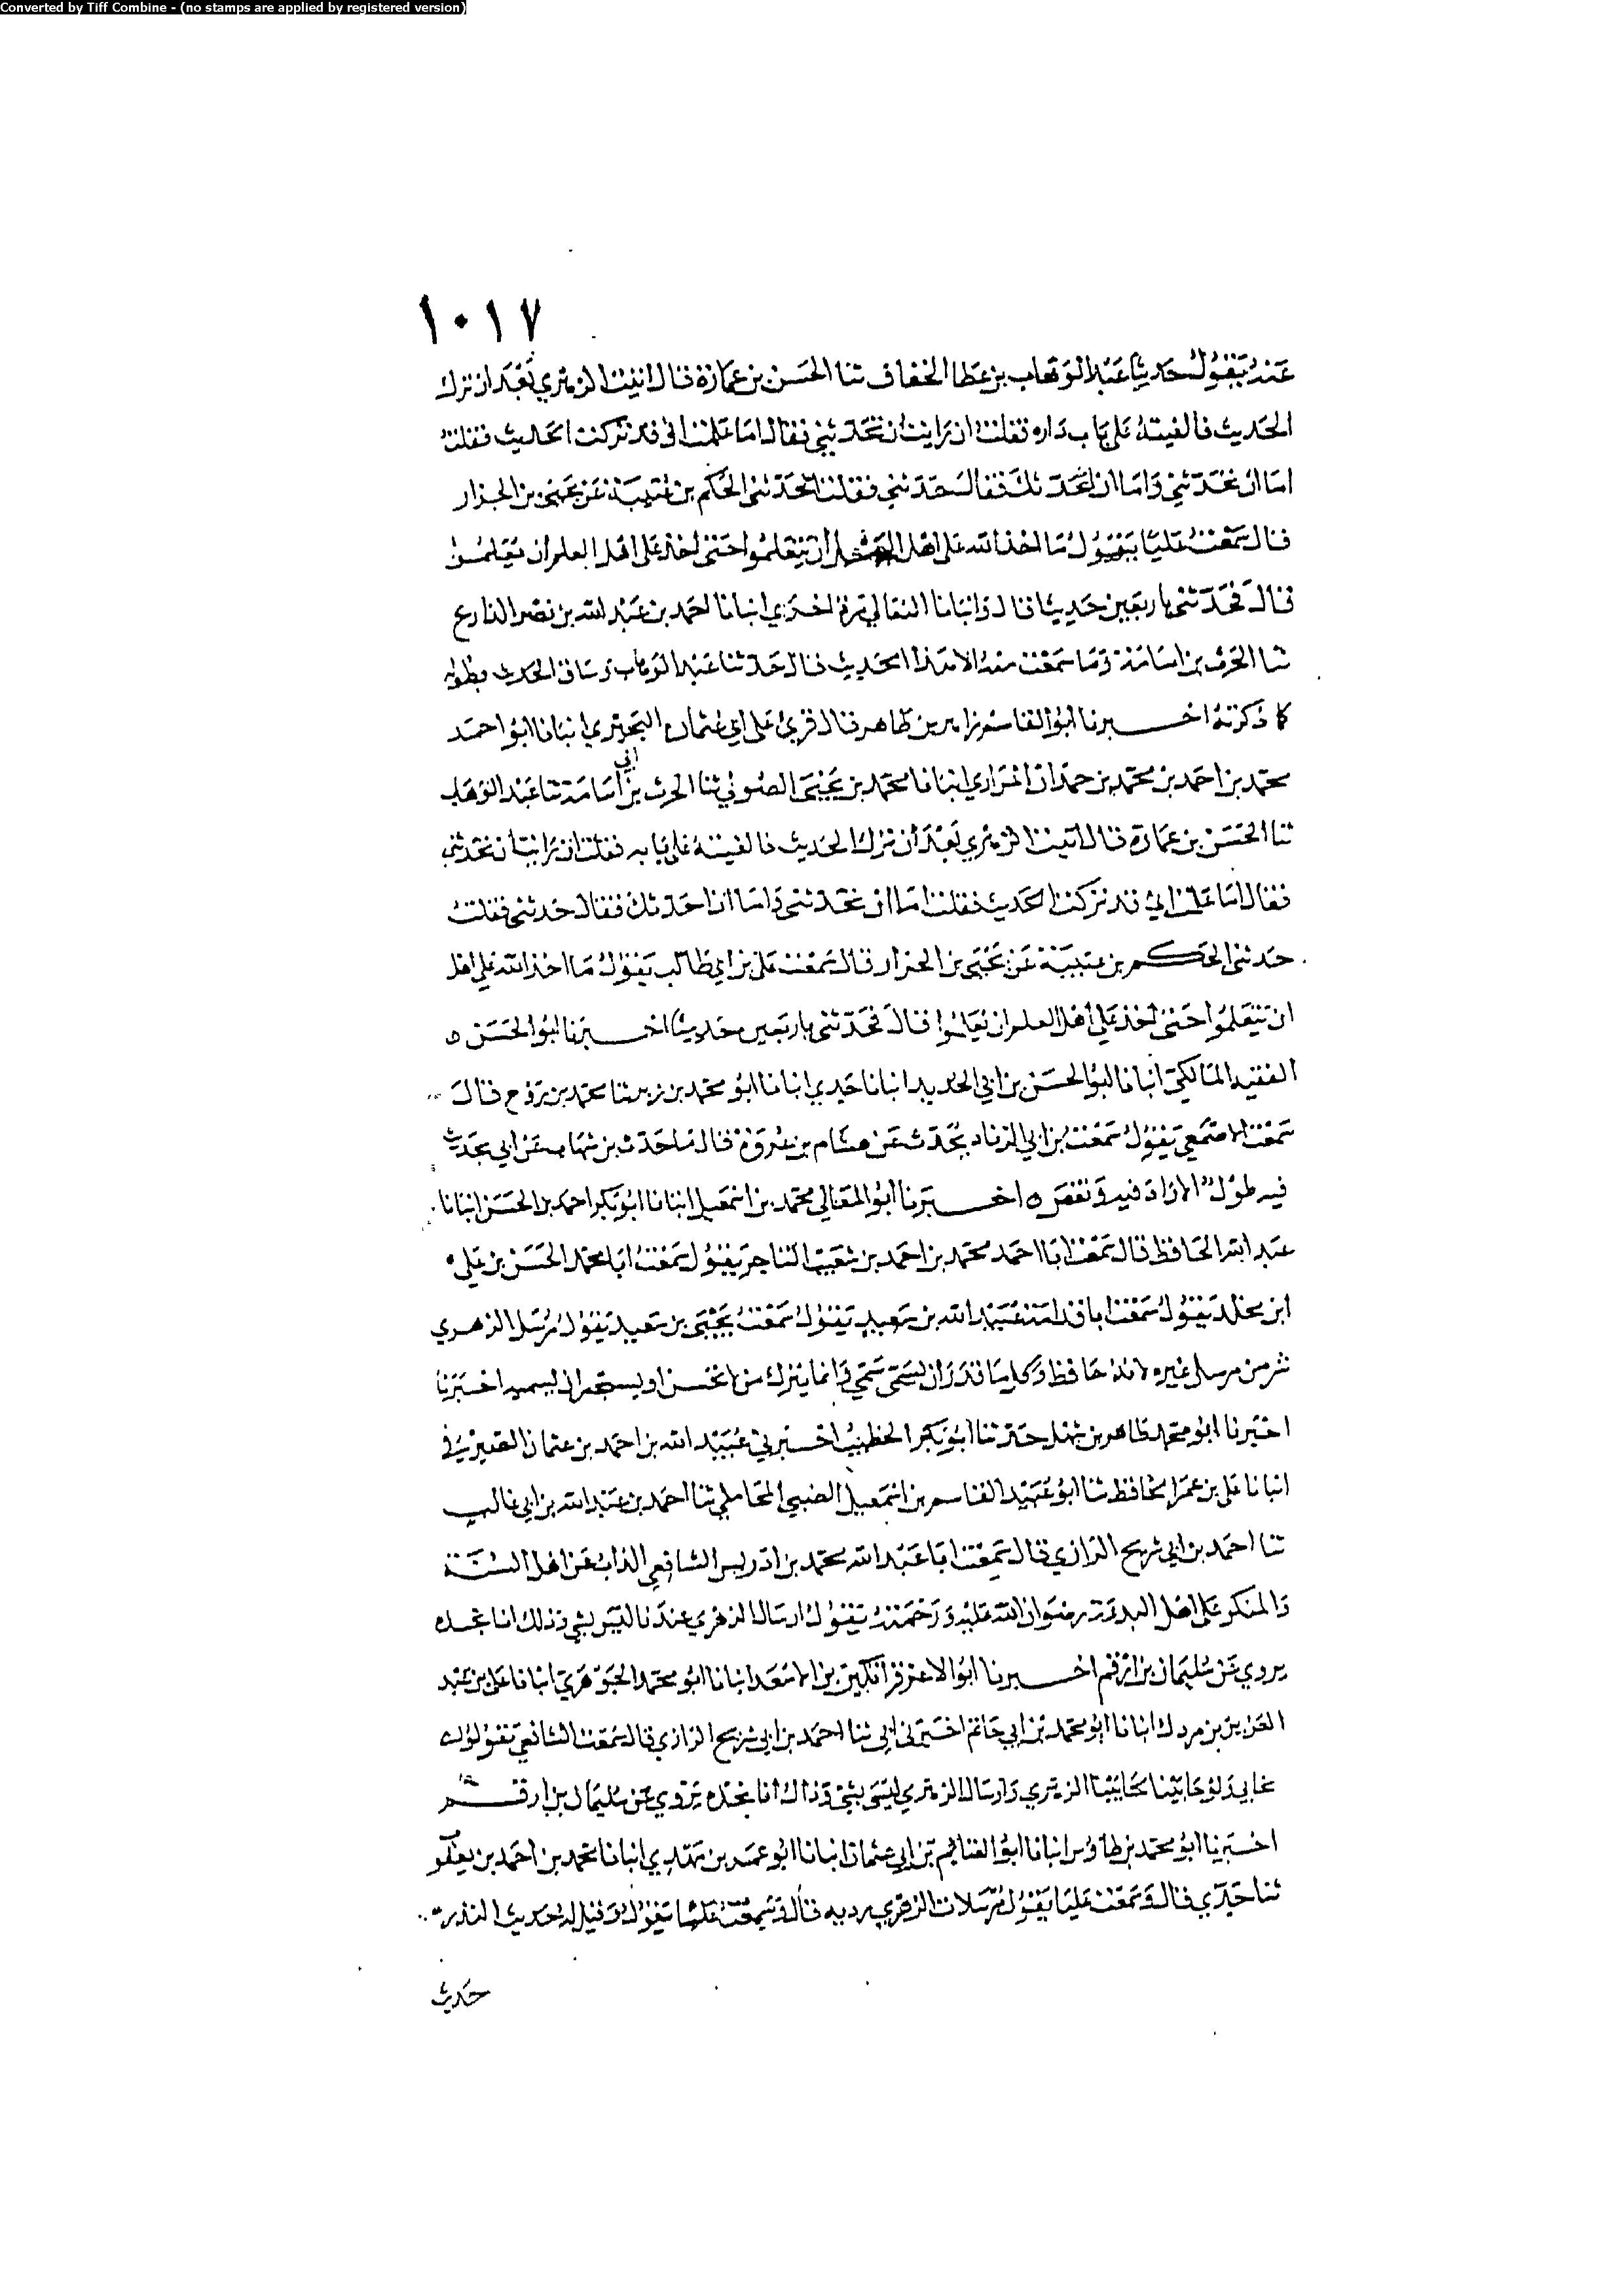 Converted by Tiff Combine - (no stamps are applied by registered version)
١٠١٧
عند يقول حديثا عبد الوهاب بن عطا الخفاف ثنا الحسن بن عمارة قال اتيت الزهري بعد ان ترك
الحديث فالفيته على باب داره فقلت ان رايت ان تحدثني فقال اما علمت اني قد تركت الحديث فقلت
اما ان تحدثني واما ان احدثك فقال حدثني فقلت حدثني الحكم بن عتيبة عن يحيى بن الجزار
قال سمعت عليا يقول ما اخذ الله على اهل الجهل ان يتعلموا حتى اخذ على اهل العلم ان يعلموا
قال فحدثني باربعين حديثا قال وانبانا النعالي مرة اخرى انبانا احمد بن عبد الله بن نصر الذارع
ثنا الحرث بن اسامة وما سمعت منه الا هذا الحديث قال حدثنا عبد الوهاب وساق الحديث بطوله
كما ذكرته اخبرنا ابو القاسم زاهر بن طاهر قال قرئ على ابي عثمان البحيري انبانا ابو احمد
محمد بن احمد بن محمد بن حمدان انبانا محمد بن يحيى الصولي ثنا الحرث بن ابي اسامة ثنا عبد الوهاب
ثنا الحسن بن عمارة قال اتيت الزهري بعد ان ترك الحديث فالفيته على بابه فقلت ان رايت ان تحدثني
فقال اما علمت اني قد تركت الحديث فقلت اما ان تحدثني واما ان احدثك فقال حدثني فقلت
حدثني الحكم بن عتيبة عن يحيى بن الجزار قال سمعت علي بن ابي طالب يقول ما اخذ الله على اهل
ان يتعلموا حتى اخذ على اهل العلم ان يعلموا قال فحدثني باربعين حديثا اخبرنا ابو الحسن ه
الفقيه المالكي انبانا ابو الحسن بن ابي الحديد انبانا جدي انبانا ابو محمد بن زبر ثنا محمد بن روح قال
سمعت الاصمعي يقول سمعت بن ابي الزناد يحدث عن هشام بن عروة قال ما حدث بن شهاب عن ابي بحديث
فيه طول الا زاد فيه ونقص ه اخبرنا ابو المعالي محمد بن اسمعيل انبانا ابو بكر احمد بن الحسن انبانا
عبد الله الحافظ قال سمعت ابا احمد محمد بن احمد بن شعيب التاجر يقول سمعت ابا محمد الحسن بن علي
ابن مخلد يقول سمعت ابا قدامة عبيد الله بن سعيد يقول سمعت يحيى بن سعيد يقول مرسل الزهري
شر من مرسل غيره لانه حافظ وكلما قدر ان يسمي سمى وانما يترك من لا يحسن او يستجيز ان يسميه اخبرنا
اخبرنا ابو محمد طاهر بن سهل حدثنا ابو بكر الخطيب اخبرني عبيد الله بن احمد بن عثمان الصيرفي
انبانا علي بن عمر الحافظ ثنا ابو عبيد القاسم بن اسمعيل الضبي المحاملي ثنا احمد بن عبد الله بن ابي غالب
ثنا احمد بن ابي شريح الرازي قال سمعت ابا عبد الله محمد بن ادريس الشافعي الذاب عن اهل السنة
والمنكر على اهل البدعة رضوان الله عليه ورحمته يقول ارسال الزهري عندنا ليس بشي وذلك انا نجده
يروي عن سليمان بن ارقم اخبرنا ابو الاعز قراتكين بن الاسعد انبانا ابو محمد الجوهري انبانا علي بن عبد
العزيز بن مردك انبانا ابو محمد بن ابي حاتم اخبرني ابي ثنا احمد بن ابي شريح الرازي قال سمعت الشافعي يقول يقولون
نحابي ولو حابينا لحابينا الزهري وارسال الزهري ليس بشي وذاك انا نجده يروي عن سليمان بن ارقم
اخبرنا ابو محمد بن طاوس انبانا ابو الغنائم بن ابي عثمان انبانا ابو عمر بن مهدي انبانا محمد بن احمد بن يعقوب
ثنا جدي قال وسمعت عليا يقول مرسلات الزهري رديه قال وسمعت عليا يقول وقيل له حديث النذر
حديث